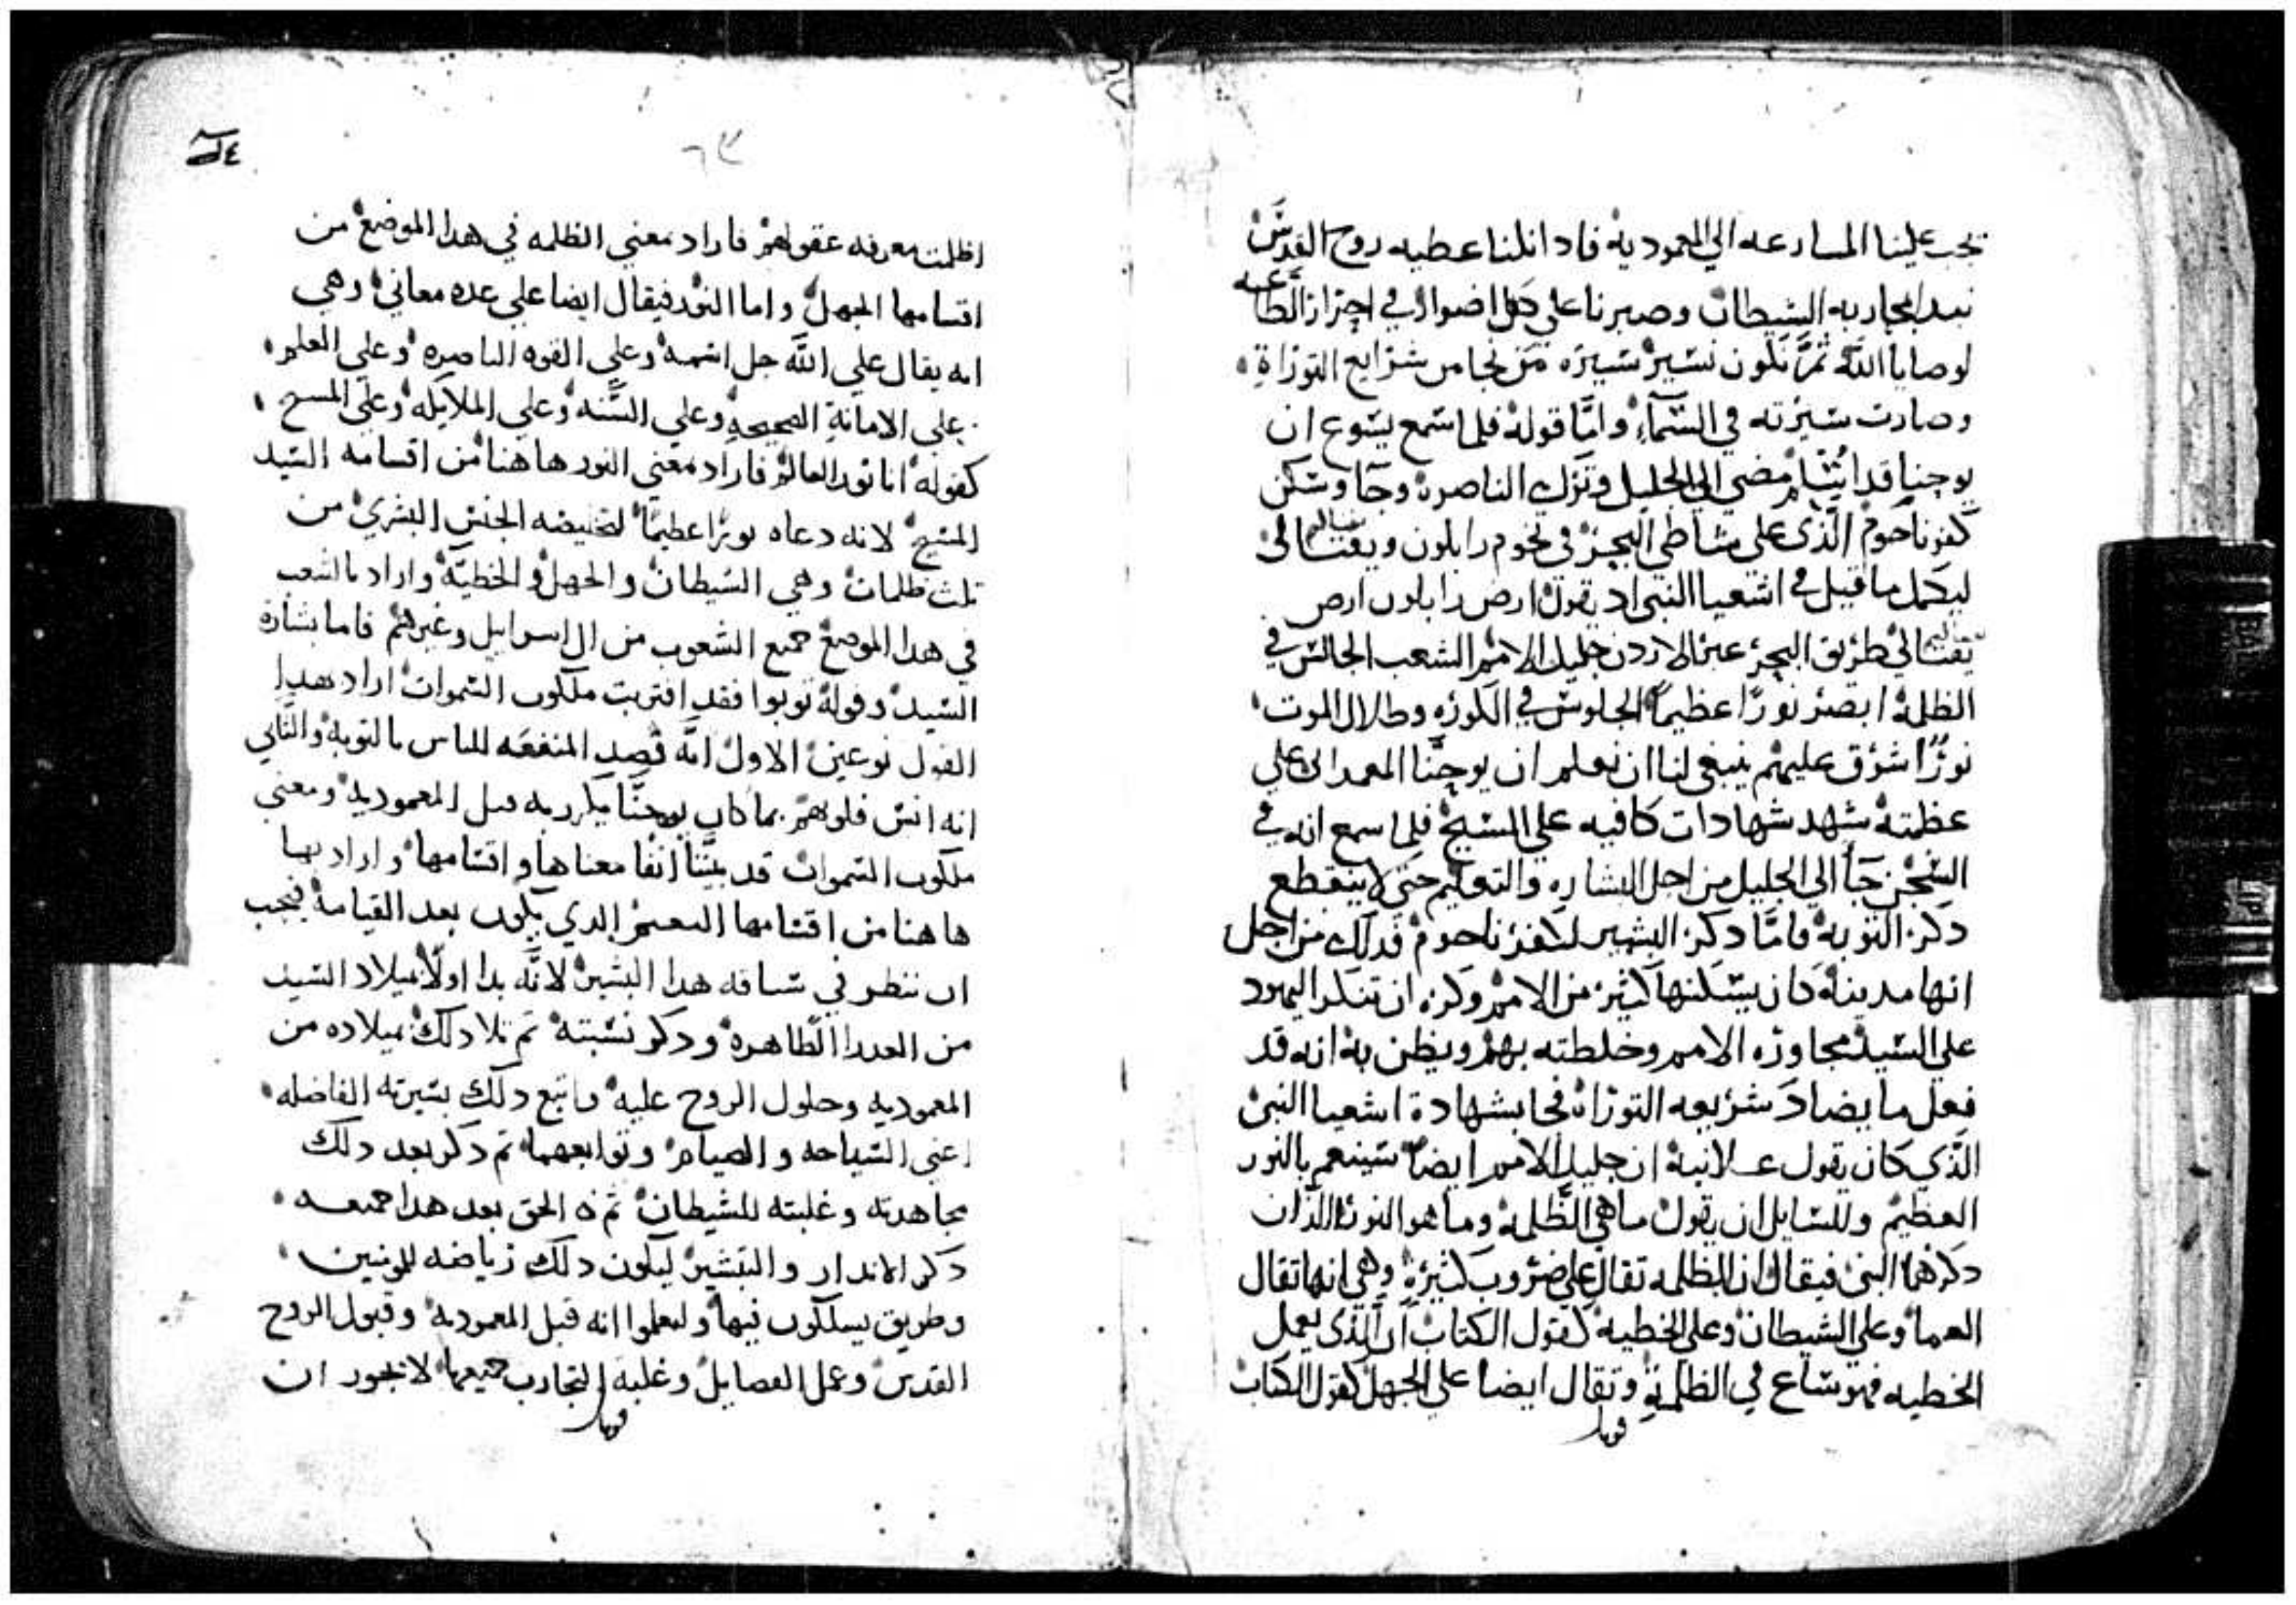 يجب علينا المسارعه الي المعموديه فادا نلنا عطيه روح القدس
نبدا بمحاربه الشيطان وصبرنا علي كل اضواره في احتراز الطاعه
لوصايا الله ثم نكون نسير سيره من نجا من شرايع التوراة
وصارت سيرته في السمآء واما قوله فلما سمع يسوع ان
يوحنا قد اسلم مضي الي الجليل وترك الناصره وجآ وسكن
كفرناحوم الذي علي شاطي البحر في تخوم زابلون ونفتالي
ليكمل ما قيل في اشعيا النبي اد يقول ارض زابلون ارض
نفتالي طريق البحر عبر الاردن جليل الامم الشعب الجالس في
الظلمة ابصر نورًا عظيمًا الجلوس في الكوره وظلال الموت
نورًا اشرق عليهم ينبغي لنا ان نعلم ان يوحنا المعمداني علي
عظمته شهد شهادات كافيه علي المسيح فلما سمع انه في
السجن جآ الي الجليل من اجل البشاره والتعليم حتي لا ينقطع
دكر التوبة واما دكر البشير لكفرناحوم فدلك من اجل
انها مدينة كان يسكنها كثير من الامم وكره ان تنكر اليهود
علي السيد مجاوزه الامم وخلطته بهم ويظن به انه قد
فعل ما يضاد شريعه التوراه فجا بشهادة اشعيا النبي
الذي كان يقول علانية ان جليل الامم ايضا سينعم بالنور
العظيم وللسايل ان يقول ما هي الظلمه وما هو النور اللذان
دكرهما النبي فيقال ان الظلمه تقال علي ضروب كثيرة وهي انها تقال
العما وعلي الشيطان وعلي الخطيه كقول الكتاب ان الذي يعمل
الخطيه فهو ساع في الظلمة وتقال ايضا علي الجهل كقول الكتاب
قوبل
٦٣
اظلمت معرفه عقولهم فاراد بمعني الظلمه في هدا الموضع من
اقسامها الجهل واما النور فيقال ايضا علي عده معاني وهي
انه يقال علي الله جل اسمه وعلي القوه الناصره وعلي العلم
وعلي الامانة الصحيحه وعلي السنه وعلي الملايكه وعلي المسيح
كقوله انا نور العالم فاراد بمعني النور هاهنا من اقسامه السيد
المسيح لانه دعاه نورًا عظيمًا لتخليصه الجنس البشري من
ثلث ظلمات وهي الشيطان والجهل والخطية واراد بالشعب
في هدا الموضع جميع الشعوب من ال اسرايل وغيرهم فاما بشارة
السيد وقوله توبوا فقد اقتربت ملكوت السموات اراد بهدا
القول نوعين الاول انه قصد المنفعه للناس بالتوبة والثاني
انه انس قلوبهم بما كان يوحنا يكرر به قبل المعمودية ومعني
ملكوت السموات قد بينا انفا معناها واقسامها واراد بها
هاهنا من اقسامها النعيم الدي يكون بعد القيامة فيجب
ان ننظر في سياقه هدا البشير لانه بدا اولًا بميلاد السيد
من العدرا الطاهرة ودكر نسبته ثم تلا دلك بميلاده من
المعموديه وحلول الروح عليه واتبع دلك بسيرته الفاضله
اعني السياحه والصيام وتوابعهما ثم دكر بعد دلك
مجاهدته وغلبته للشيطان ثم الحق بعد هدا جميعه
دكر الاندار والتبشير ليكون دلك رياضه للمومنين
وطريق يسلكون فيها وليعلموا انه قبل المعمودية وقبول الروح
القدس وعمل الفضايل وغلبة التجارب جميعها لا يجوز ان
قوبل